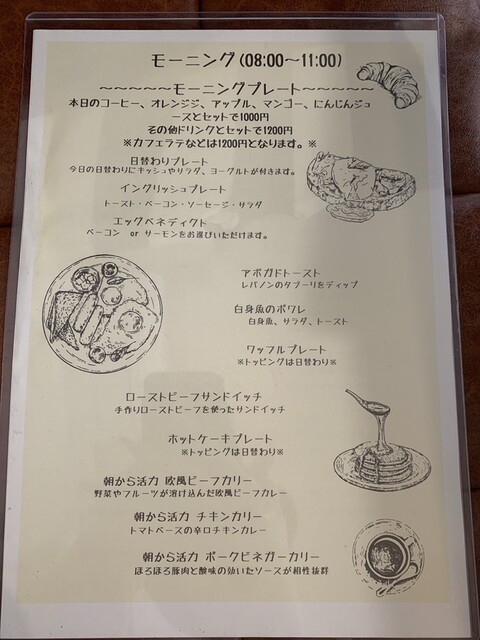 モーニング(08:00～11:00)
～～～～～モーニングプレート～～～～～
本日のコーヒー、オレンジジ、アップル、マンゴー、にんじんジュ
ースとセットで1000円
その他ドリンクとセットで1200円
※カフェラテなどは1200円となります。※
日替わりプレート
今日の日替わりにキッシュやサラダ、ヨーグルトが付きます。
イングリッシュプレート
トースト・ベーコン・ソーセージ・サラダ
エッグベネディクト
ベーコン or サーモンをお選びいただけます。
アボガドトースト
レバノンのタブーリをディップ
白身魚のポワレ
白身魚、サラダ、トースト
ワッフルプレート
※トッピングは日替わり※
ローストビーフサンドイッチ
手作りローストビーフを使ったサンドイッチ
ホットケーキプレート
※トッピングは日替わり※
朝から活力 欧風ビーフカリー
野菜やフルーツが溶け込んだ欧風ビーフカレー
朝から活力 チキンカリー
トマトベースの辛口チキンカレー
朝から活力 ポークビネガーカリー
ほろほろ豚肉と酸味の効いたソースが相性抜群